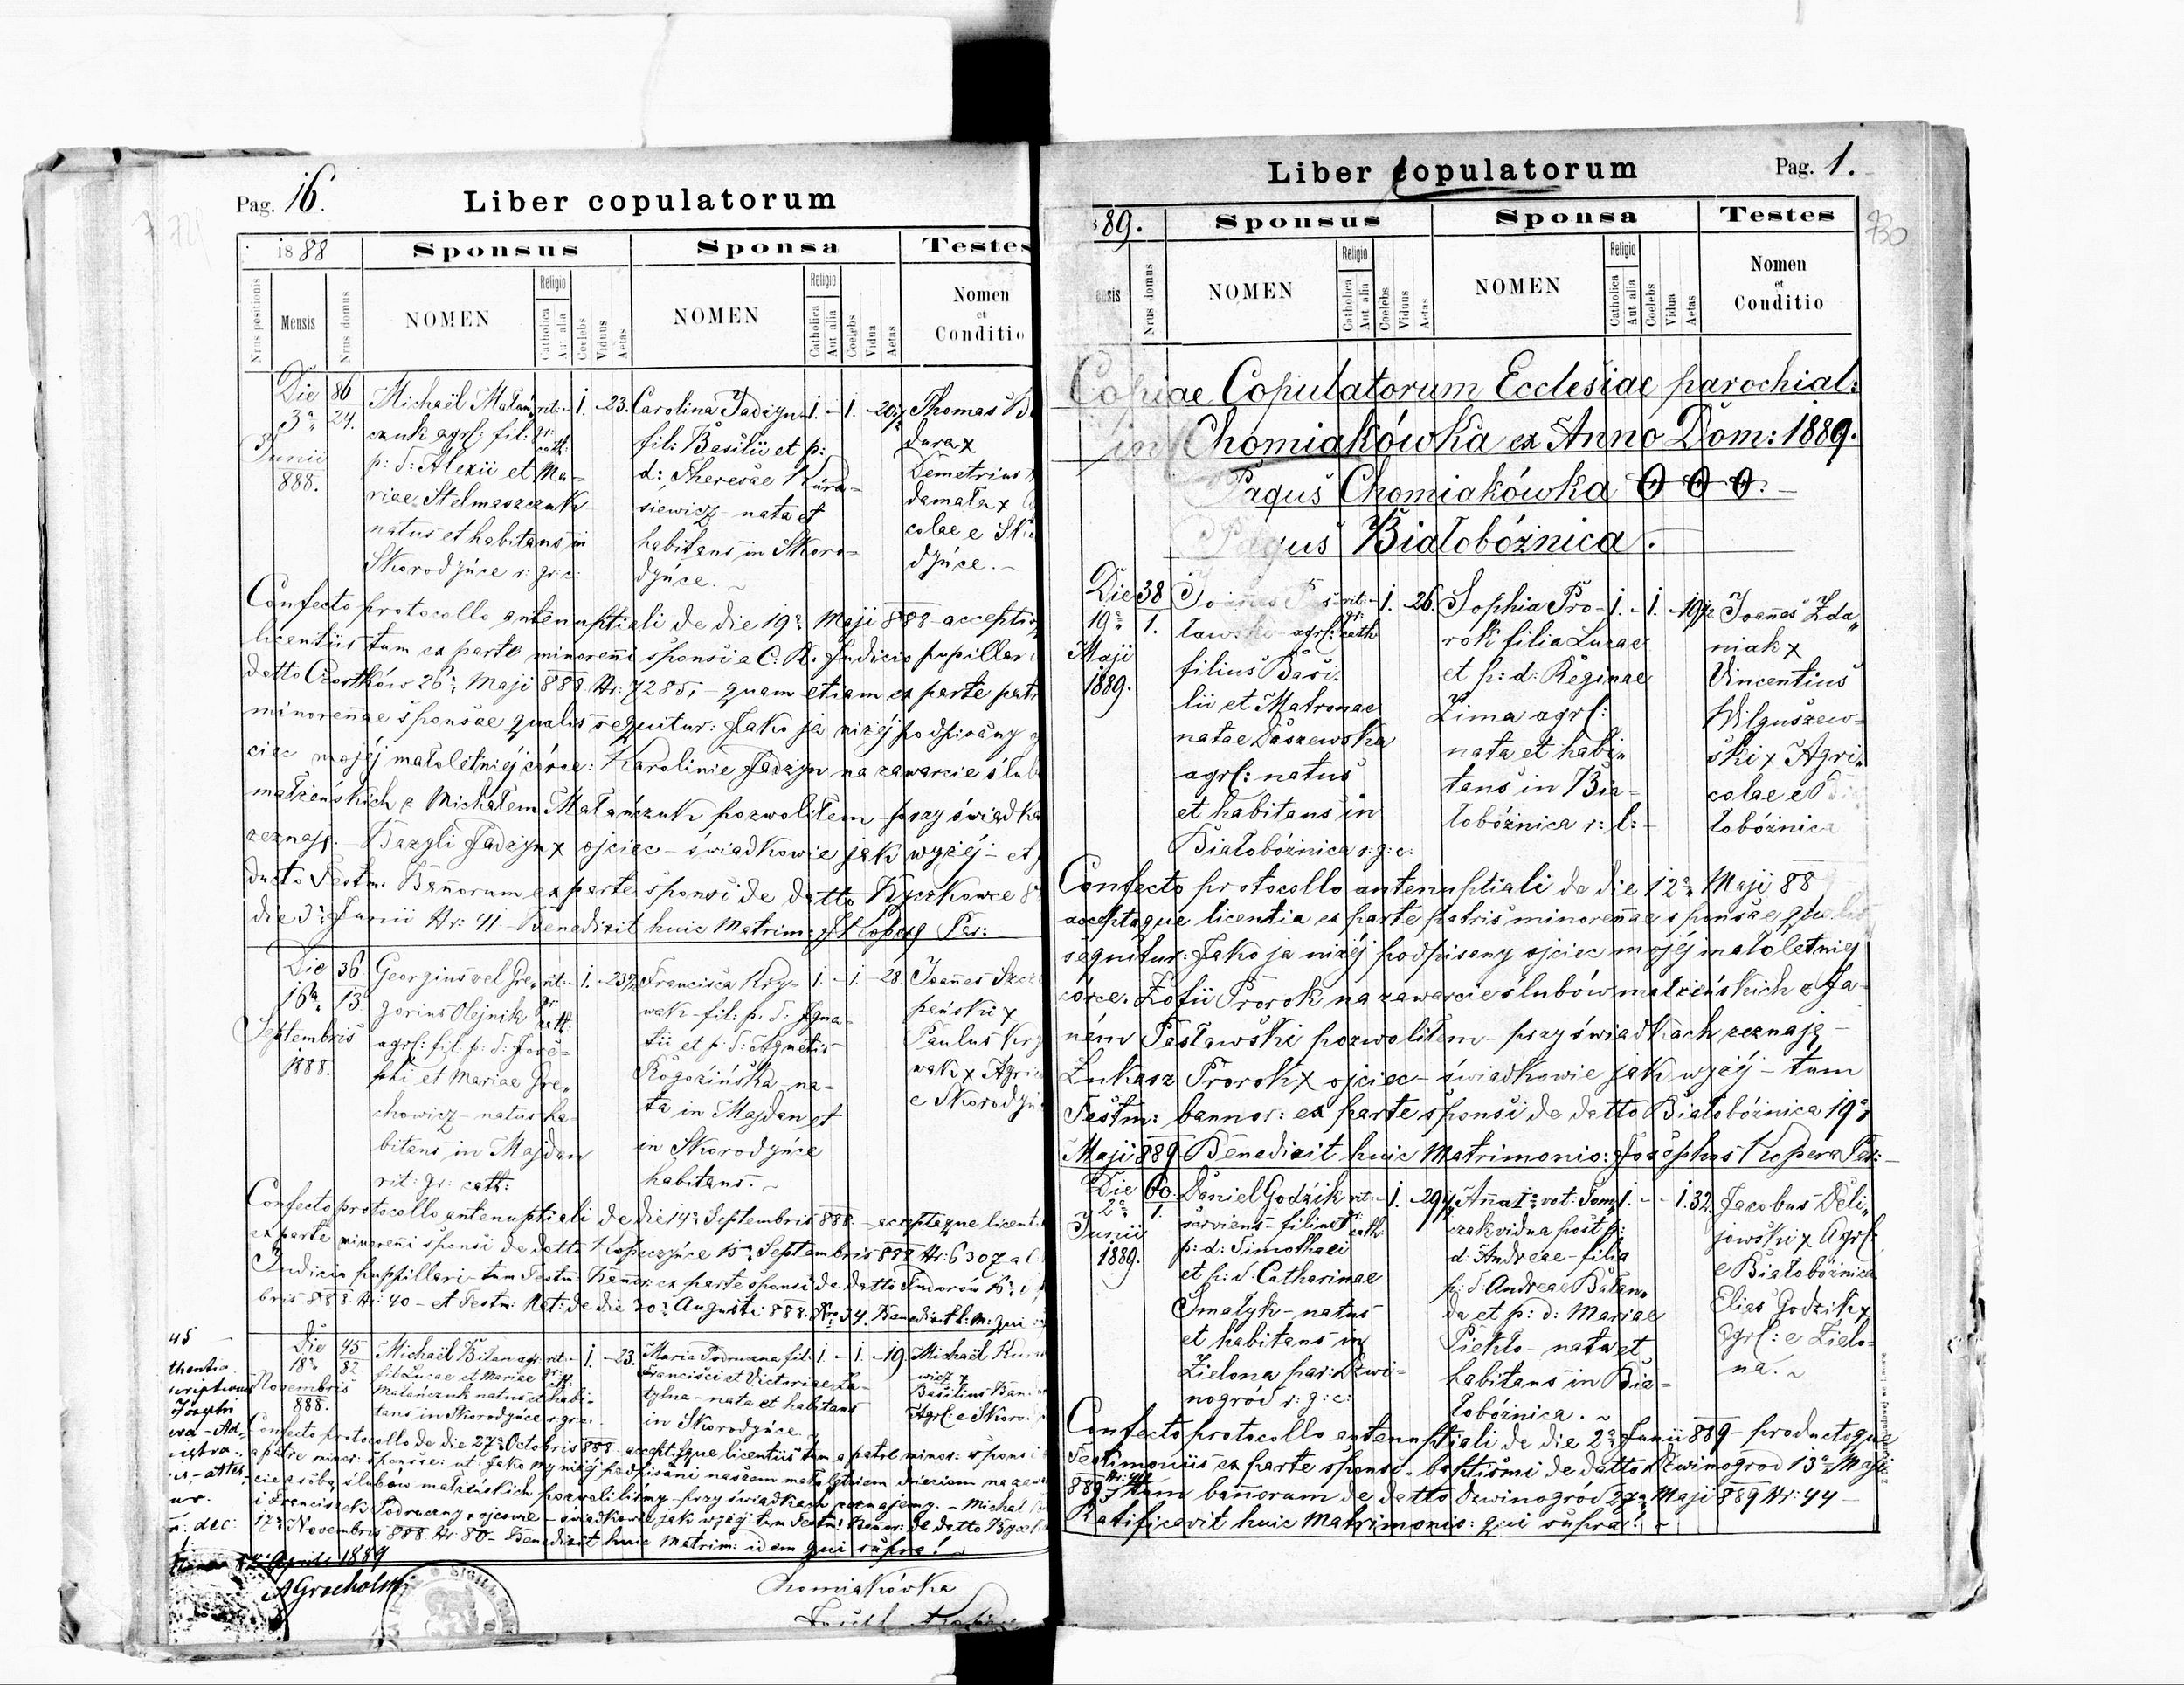 Pag. 16.
Liber copulatorum
1888
Sponsus
Sponsa
Testes
Nrus positionis
Mensis
Nrus domus
NOMEN
Religio
Catholica
Aut alia
Coelebs
Viduus
Aetas
NOMEN
Religio
Catholica
Aut alia
Coelebs
Vidua
Aetas
Nomen
et
Conditio
Die
3a
Junii
888.
86
24.
Michaël Matań,
czuk agrl: fil:
p: d: Alexii et Ma-
riae Stelmaszczuk
natus et habitans in
Skorodyńce r: gr: c:
rit:
gr:
cath:
1. - 23.
Carolina Jadzyn
fil: Basilii et p:
d: Theresae Kura-
siewicz - nata et
habitans in Skoro-
dyńce. ~
1. - 1. - 20½
Thomas
dura x
Demetrius
damala x
colae e
dyńce. -
Confecto protocollo antenuptiali de die 19a Maji 888 - acceptis
licentiis tum ex parte minorenni sponsi a C: K: Judicio pupillari
datto Czortków 26a Maji 888 Nr: 7285, - quam etiam ex parte patris
minorennae sponsae qualis sequitur: Jako ja niżéj podpisany
ciec mojéj małoletniéj córce: Karolinie Jadzyn na zawarcie ślub
małżeńskich z Michałem Matańczuk pozwoliłem - przy świadka
zeznaję. - Bazyli Jadzyn x ojciec - świadkowie jak wyżéj - et
ducto Testm: Bannorum ex parte sponsi de datto Byczkowce
die 3a Junii Nr: 41 - Benedixit huic Matrim: Par:
Die
16a
Septembris
1888.
36
13
Georgius vel Gre,
gorius Olejnik
agrl: fil: p: d: Jose-
phi et Mariae Gre,
chowicz - natus ha-
bitans in Majdan
rit: gr: cath:
rit:
gr:
cath:
1. - 23½
Francisca Kry-
wak - fil: p: d: Igna-
tii et p: d: Agnetis
Rogozińska - na-
ta in Majdan et
in Skorodyńce
habitans. ~
1. - 1. - 28.
Joannes
pański x
Paulus Kry
wak x
e Skorodyń
Confecto protocollo antenuptiali de die 14a Septembris 888 - acceptaque licent
ex parte minorenni sponsi de datto Kopeczyńce 15a Septembris 888 Nr: 6307 a
Judicio pupillari - tum Testm: Bannor: ex parte sponsi de datto Tudorów
bris 888. Nr: 40 - et Testm: Nat: de die 30a Augusti 888. Nr: 34. Benedixit h: m: qui
Die
18a
Novembris
888.
45
82
Michaël Bilan agr:
fil: Lucae et Mariae
Matańczuk natus et habi-
tans in Skorodyńce r: gr: c:
rit:
gr:
cath:
1. - 23.
Maria Podruczna fil:
Francisci et Victoriae
tylna - nata et habitans
in Skorodyńce.
1. - 1. - 19.
Michaël
wicz x
Basilius
Agrl: e
Confecto protocollo de die 27a Octobris 888 acceptisque licentiis tum a patre minor: sponsi
a patre minor: sponsae: ut: Jako my niżéj podpisani naszem małoletniem dzieciom na
cie z sobą ślubów małżeńskich pozwoliliśmy - przy świadkach zeznajemy. - Michał
i Franciszek Podruczny x ojcowie - świadkowie jak wyżéj - tum Testm: Bannor: de datto
17a Novembris 888 Nr: 80 - Benedixit huic Matrim: idem qui supra! ~
Aprili 1889
Chomiakówka
Liber copulatorum
Pag. 1.
730
89.
Sponsus
Sponsa
Testes
Nrus domus
NOMEN
Religio
Catholica
Aut alia
Coelebs
Viduus
Aetas
NOMEN
Religio
Catholica
Aut alia
Coelebs
Vidua
Aetas
Nomen
et
Conditio
Copiae Copulatorum Ecclesiae parochial:
in Chomiakówka ex Anno Dom: 1889.
Pagus Chomiakówka 0 0 0. -
Pagus Białobóżnica.
Die
19a
Maji
1889.
38
1.
ławski - agrl:
filius Basi-
lii et Matronae
natae Daszewska
agrl: natus
et habitans in
Białobóżnica r: g: c:
rit:
gr:
cath
1. - 26.
Sophia Pro-
rok filia Lucae
et p: d: Reginae
Zima agrl:
nata et habi,
tans in Bia-
łobóżnica r: l: -
1. - 1. - 19½
Joannes Zda,
niak x
Vincentius
Wilguszew-
ski x Agri,
colae e
łobóżnica
Confecto protocollo antenuptiali de die 12a Maji 88
acceptaque licentia ex parte patris minorennae sponsae qualis
sequitur: Jako ja niżéj podpisany ojciec mojéj małoletniéj
córce. Zofii Prorok na zawarcie ślubów małżeńskich z Ja-
ném Pasławski pozwoliłem - przy świadkach zeznaję -
Łukasz Prorok x ojciec - świadkowie jak wyżéj - tum
Testm: bannor: ex parte sponsi de datto Białobóżnica 19a
Maji 889 Benedixit huic Matrimonio: Josephus Kopera Par: -
Die
2a
Junii
1889.
60.
1.
Daniel Godzik
serviens - filius
p: d: Timothaei
et p: d: Catharinae
Smalyk - natus
et habitans in
Zielona par: Dzwi-
nogród r: g: c:
rit:
gr:
cath:
1. - 29½
Anna Ia vot: Tom,
czak vidua post p:
d: Andreae - filia
p: d: Andreae Bałan,
da et p: d: Mariae
Piekło - nata et
habitans in Bia-
łobóżnica. ~
1. - - 1. 32.
Jacobus Deli,
jowski x Agrl:
e Białobóżnica
Elias Godzik x
Agrl: e Zielo-
na. ~
Confecto protocollo antenuptiali de die 2a Junii 889 - productoque
Testimoniis ex parte sponsi - baptismi de datto Dzwinogród 13a Maji
889 tum bannorum de datto Dzwinogród 27a Maji 889 Nr: 44 -
Ratificavit huic Matrimonio: qui supra! ~